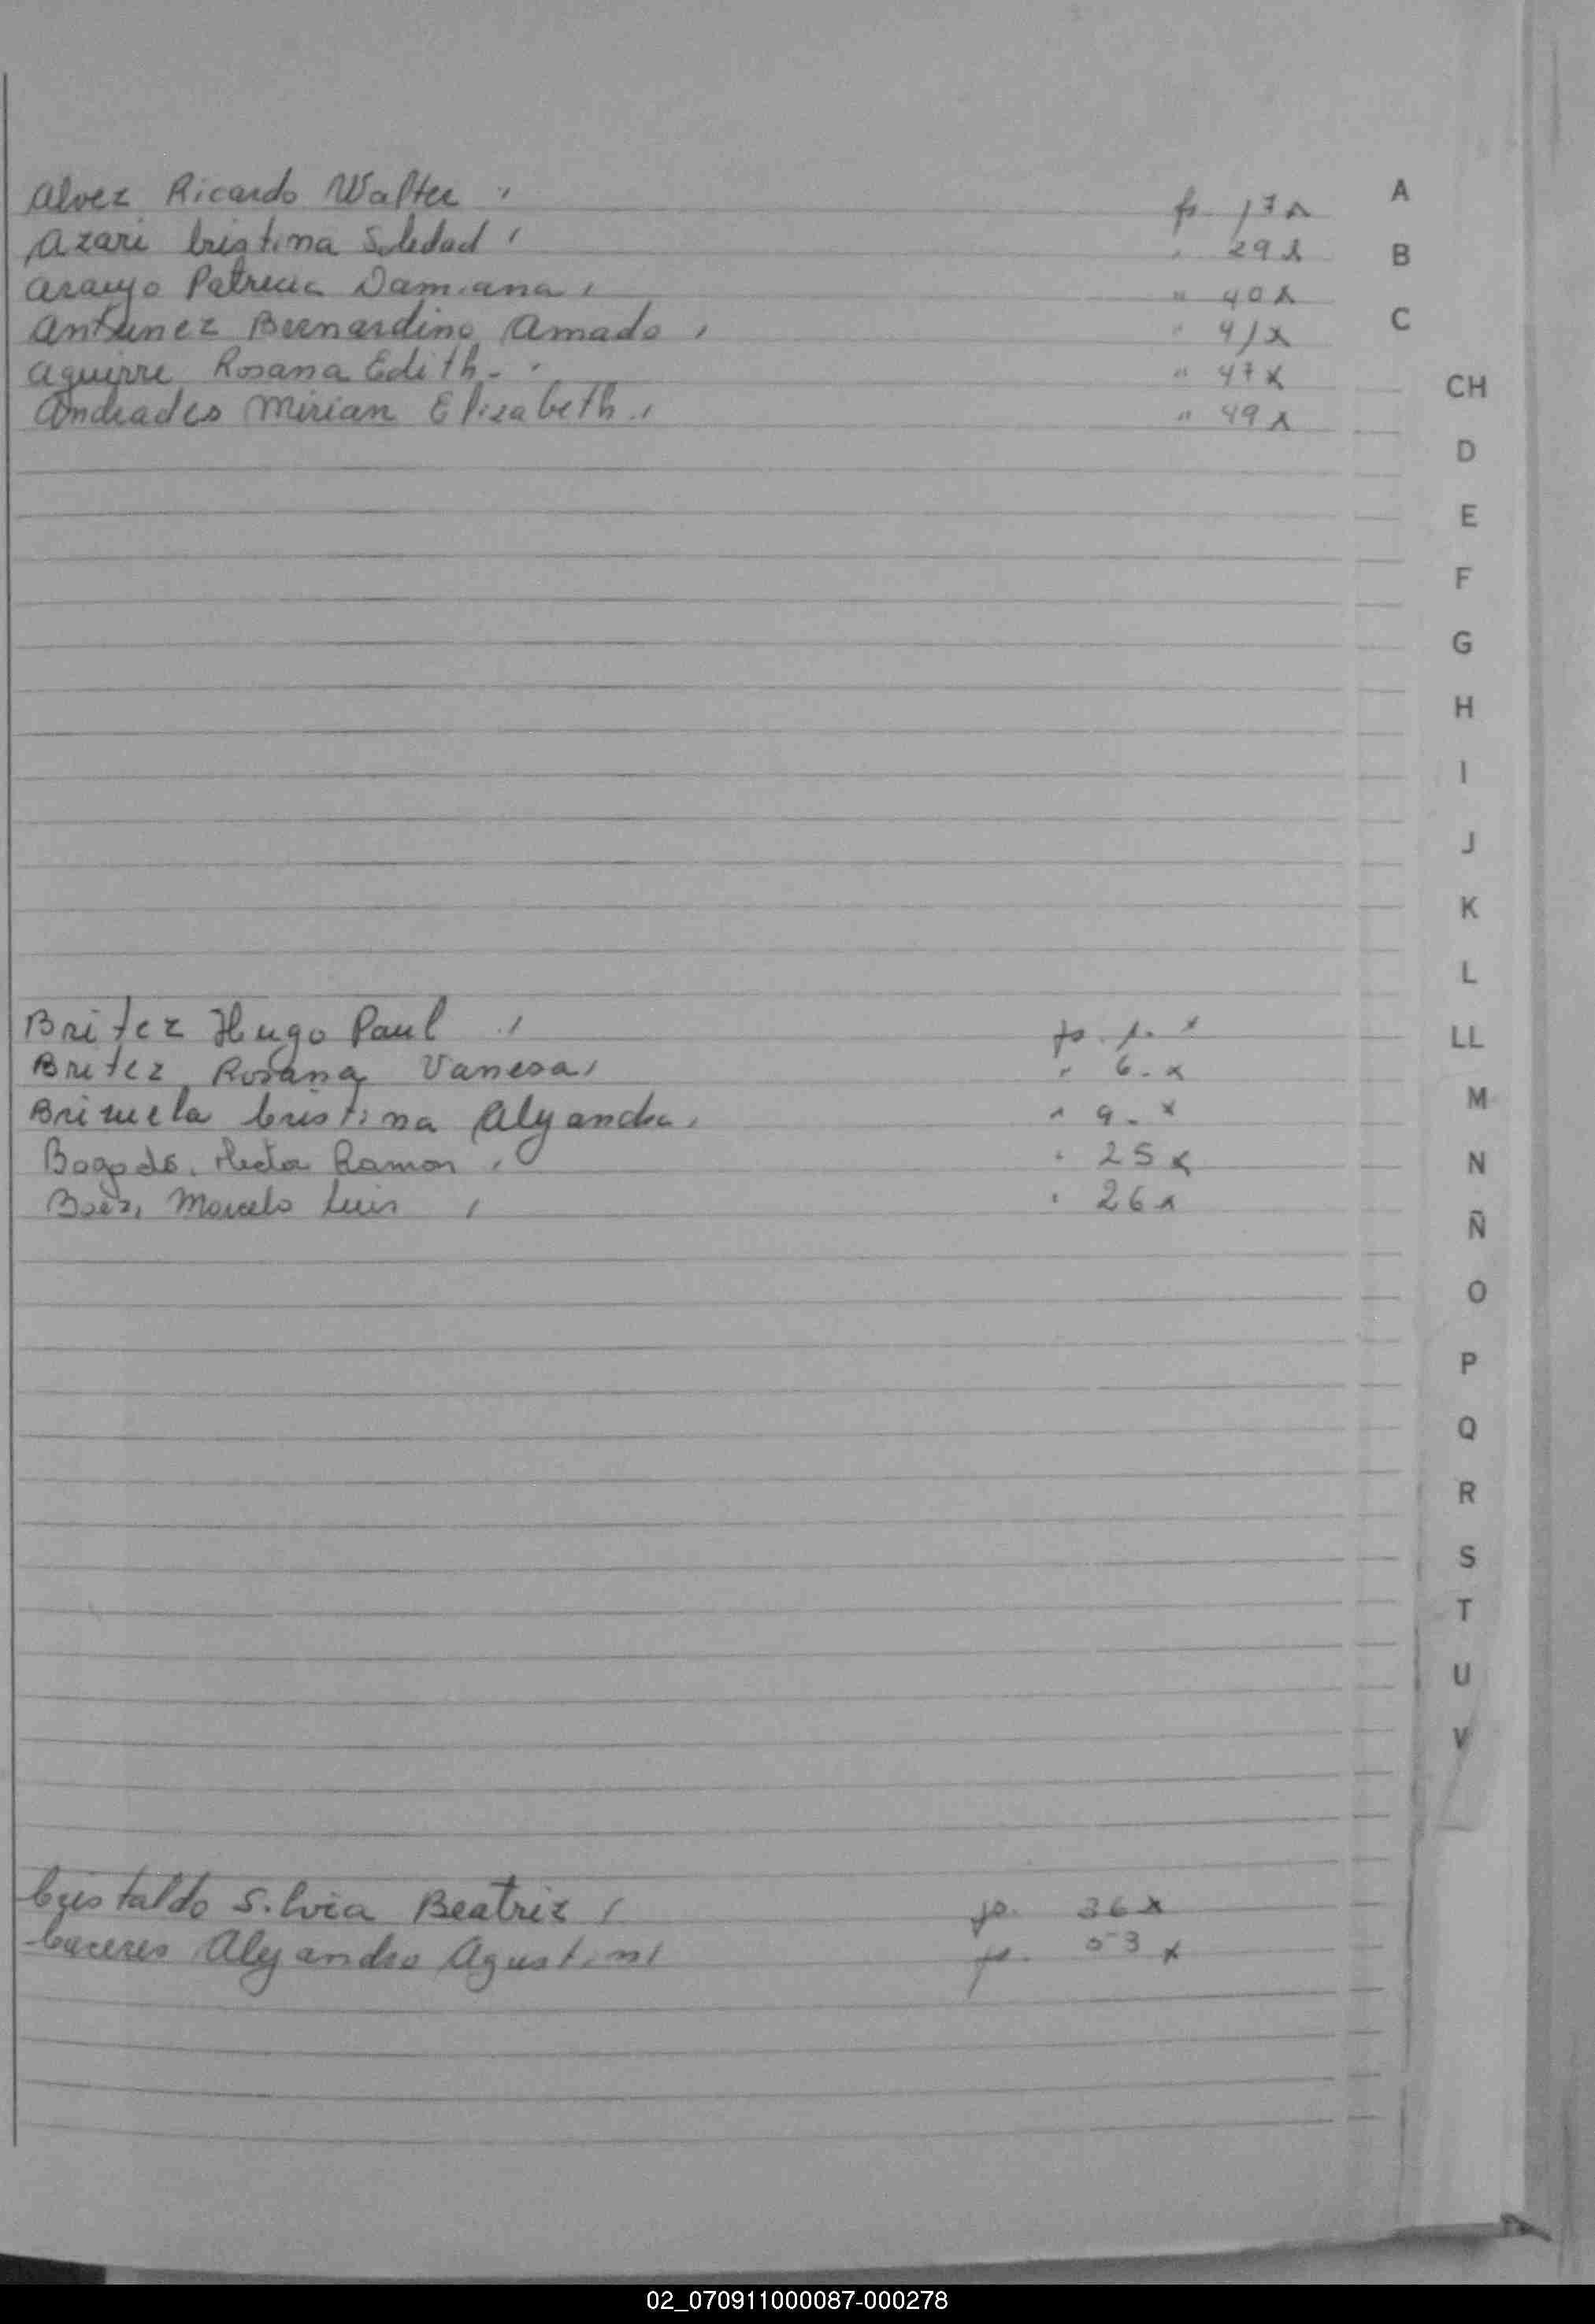 Alvez Ricardo Walter fo 17 x
Azari Cristina Soledad " 29 x
Araujo Patricia Damiana " 40 x
Antunez Bernardino Amado " 41 x
Aguirre Rosana Edith - " 47 x
Andrades Mirian Elizabeth " 49 x
Britez Hugo Paul fo. 1. x
Britez Rosana Vanesa " 6 - x
Brizuela Cristina Alejandra " 9 - x
Bogado, Hector Ramon " 25 x
Baez, Marcelo Luis " 26 x
Cristaldo Silvia Beatriz fo. 36 x
Caceres Alejandro Agustin fo. 53 x
A
B
C
CH
D
E
F
G
H
I
J
K
L
LL
M
N
Ñ
O
P
Q
R
S
T
U
V
02_070911000087-000278